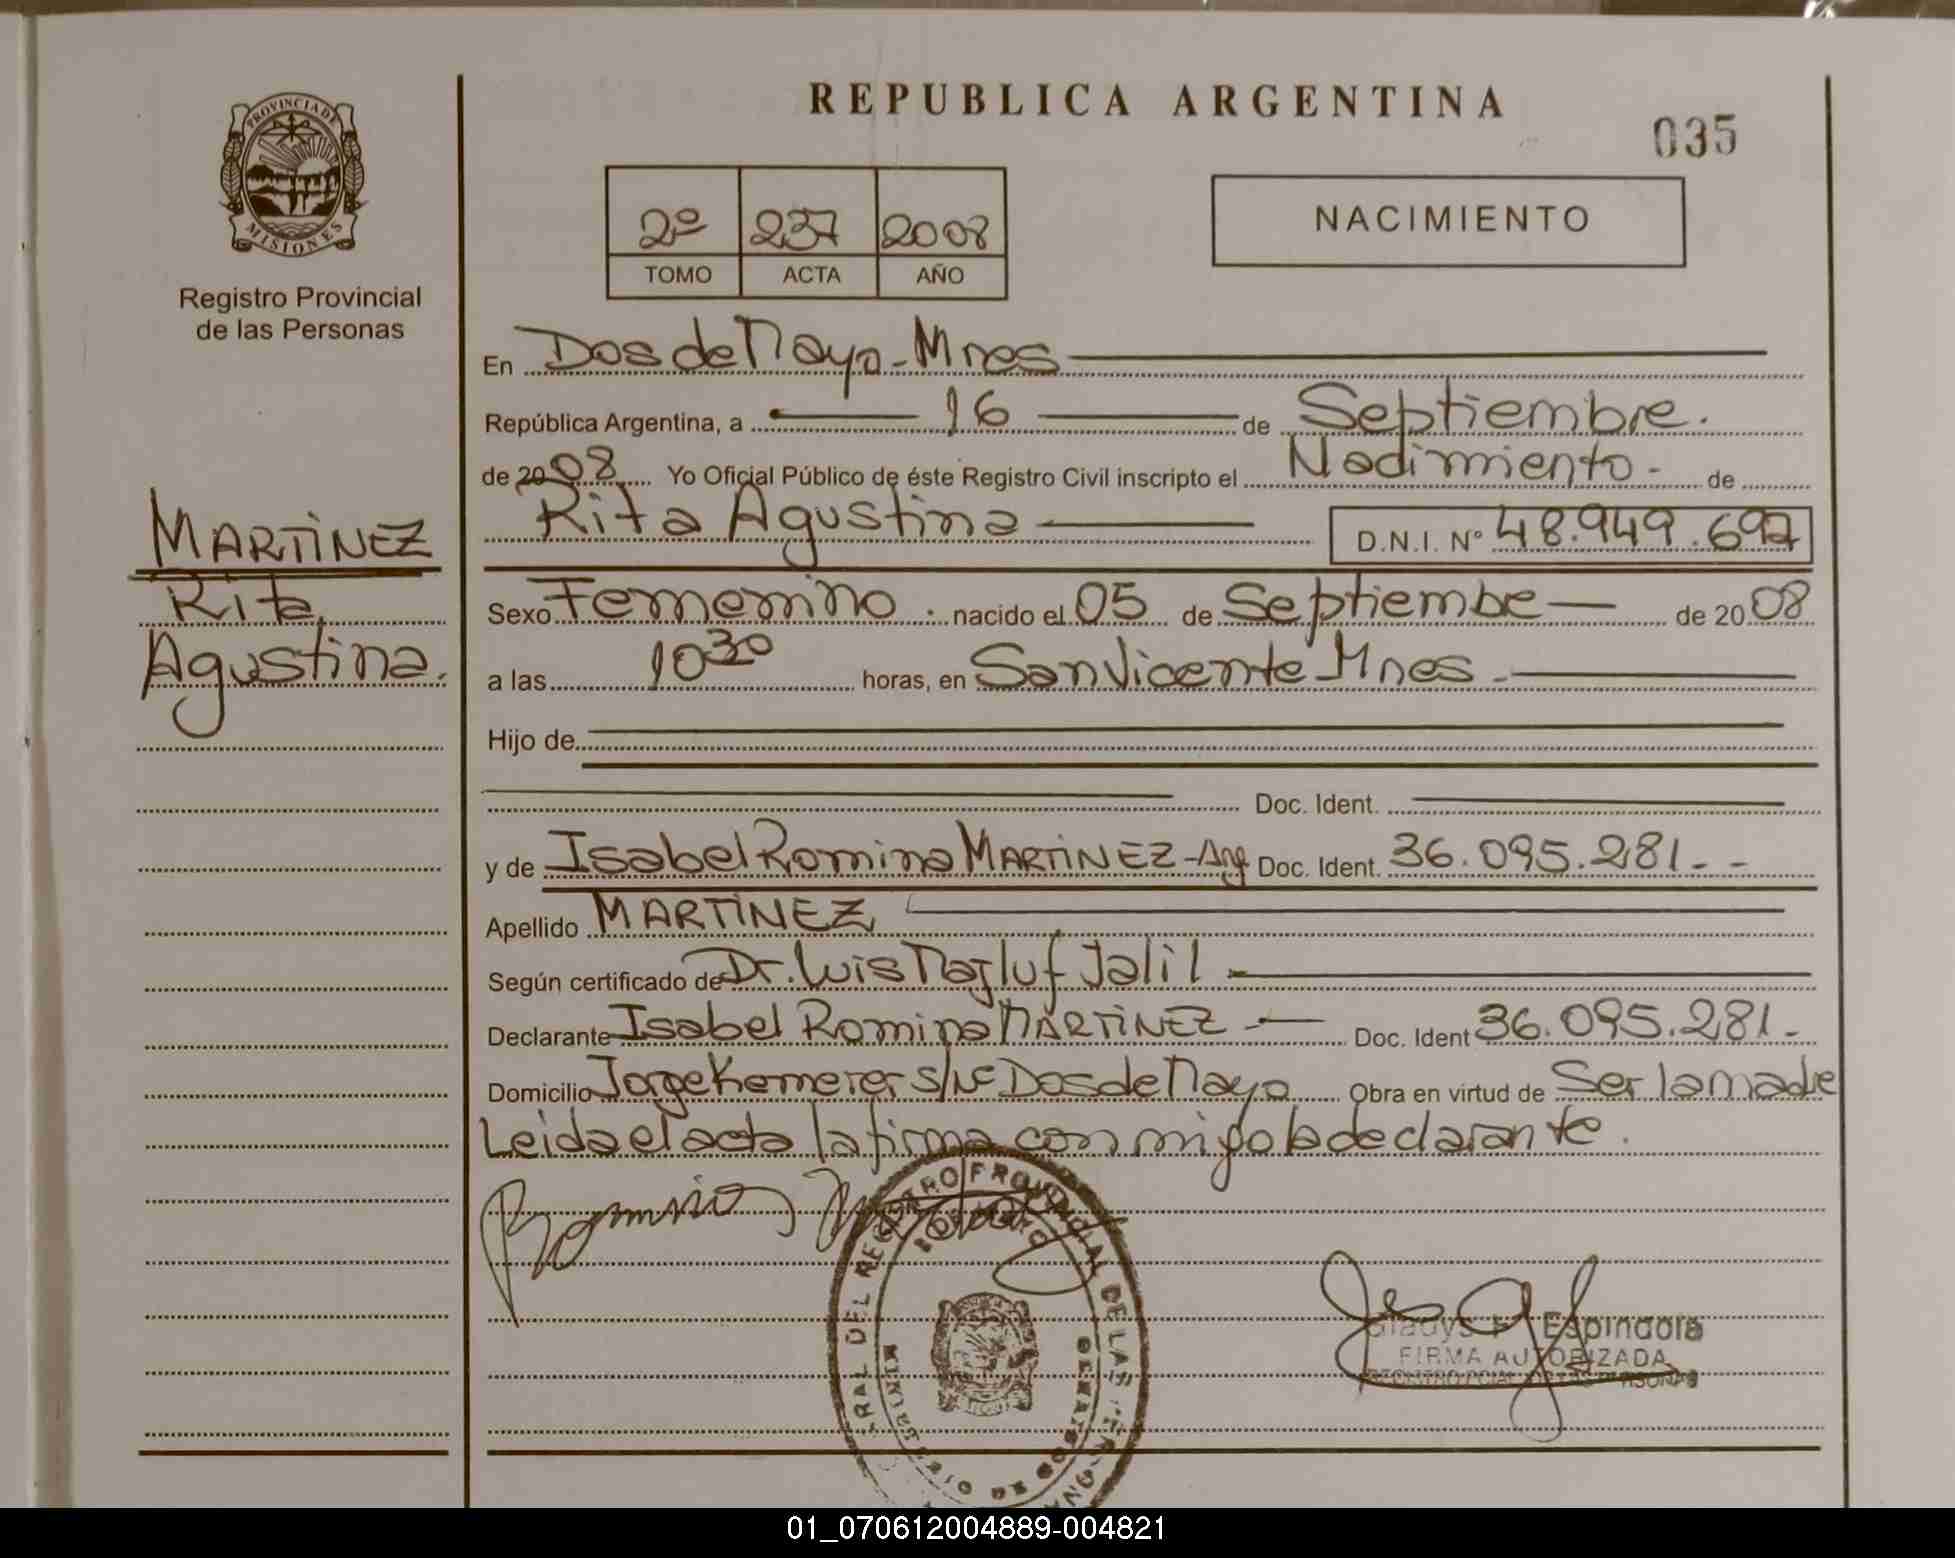 REPUBLICA ARGENTINA
035
PROVINCIA DE
MISIONES
Registro Provincial
de las Personas
2º 237 2008
TOMO ACTA AÑO
NACIMIENTO
En Dos de Mayo - Mnes
República Argentina, a 16 de Septiembre.
de 2008 Yo Oficial Público de éste Registro Civil inscripto el Nadimiento - de
Rita Agustina D.N.I. Nº 48.949.697
MARTINEZ
Rita
Agustina.
Sexo Femenino . nacido el 05 de Septiembe de 2008
a las 10 30 horas, en San Vicente Mnes -
Hijo de
Doc. Ident.
y de Isabel Romina MARTINEZ - Arg Doc. Ident. 36.095.281 - -
Apellido MARTINEZ
Según certificado de Dr. Luis Majluf Jalil
Declarante Isabel Romina MARTINEZ - Doc. Ident 36.095.281 -
Domicilio Jorge Kemerer S/Nº Dos de Mayo Obra en virtud de Ser la madre
Leida el acta la firma conmigo la declarante.
REGISTRO PROVINCIAL DE LAS
Gladys Espindola
FIRMA AUTORIZADA
01_070612004889-004821